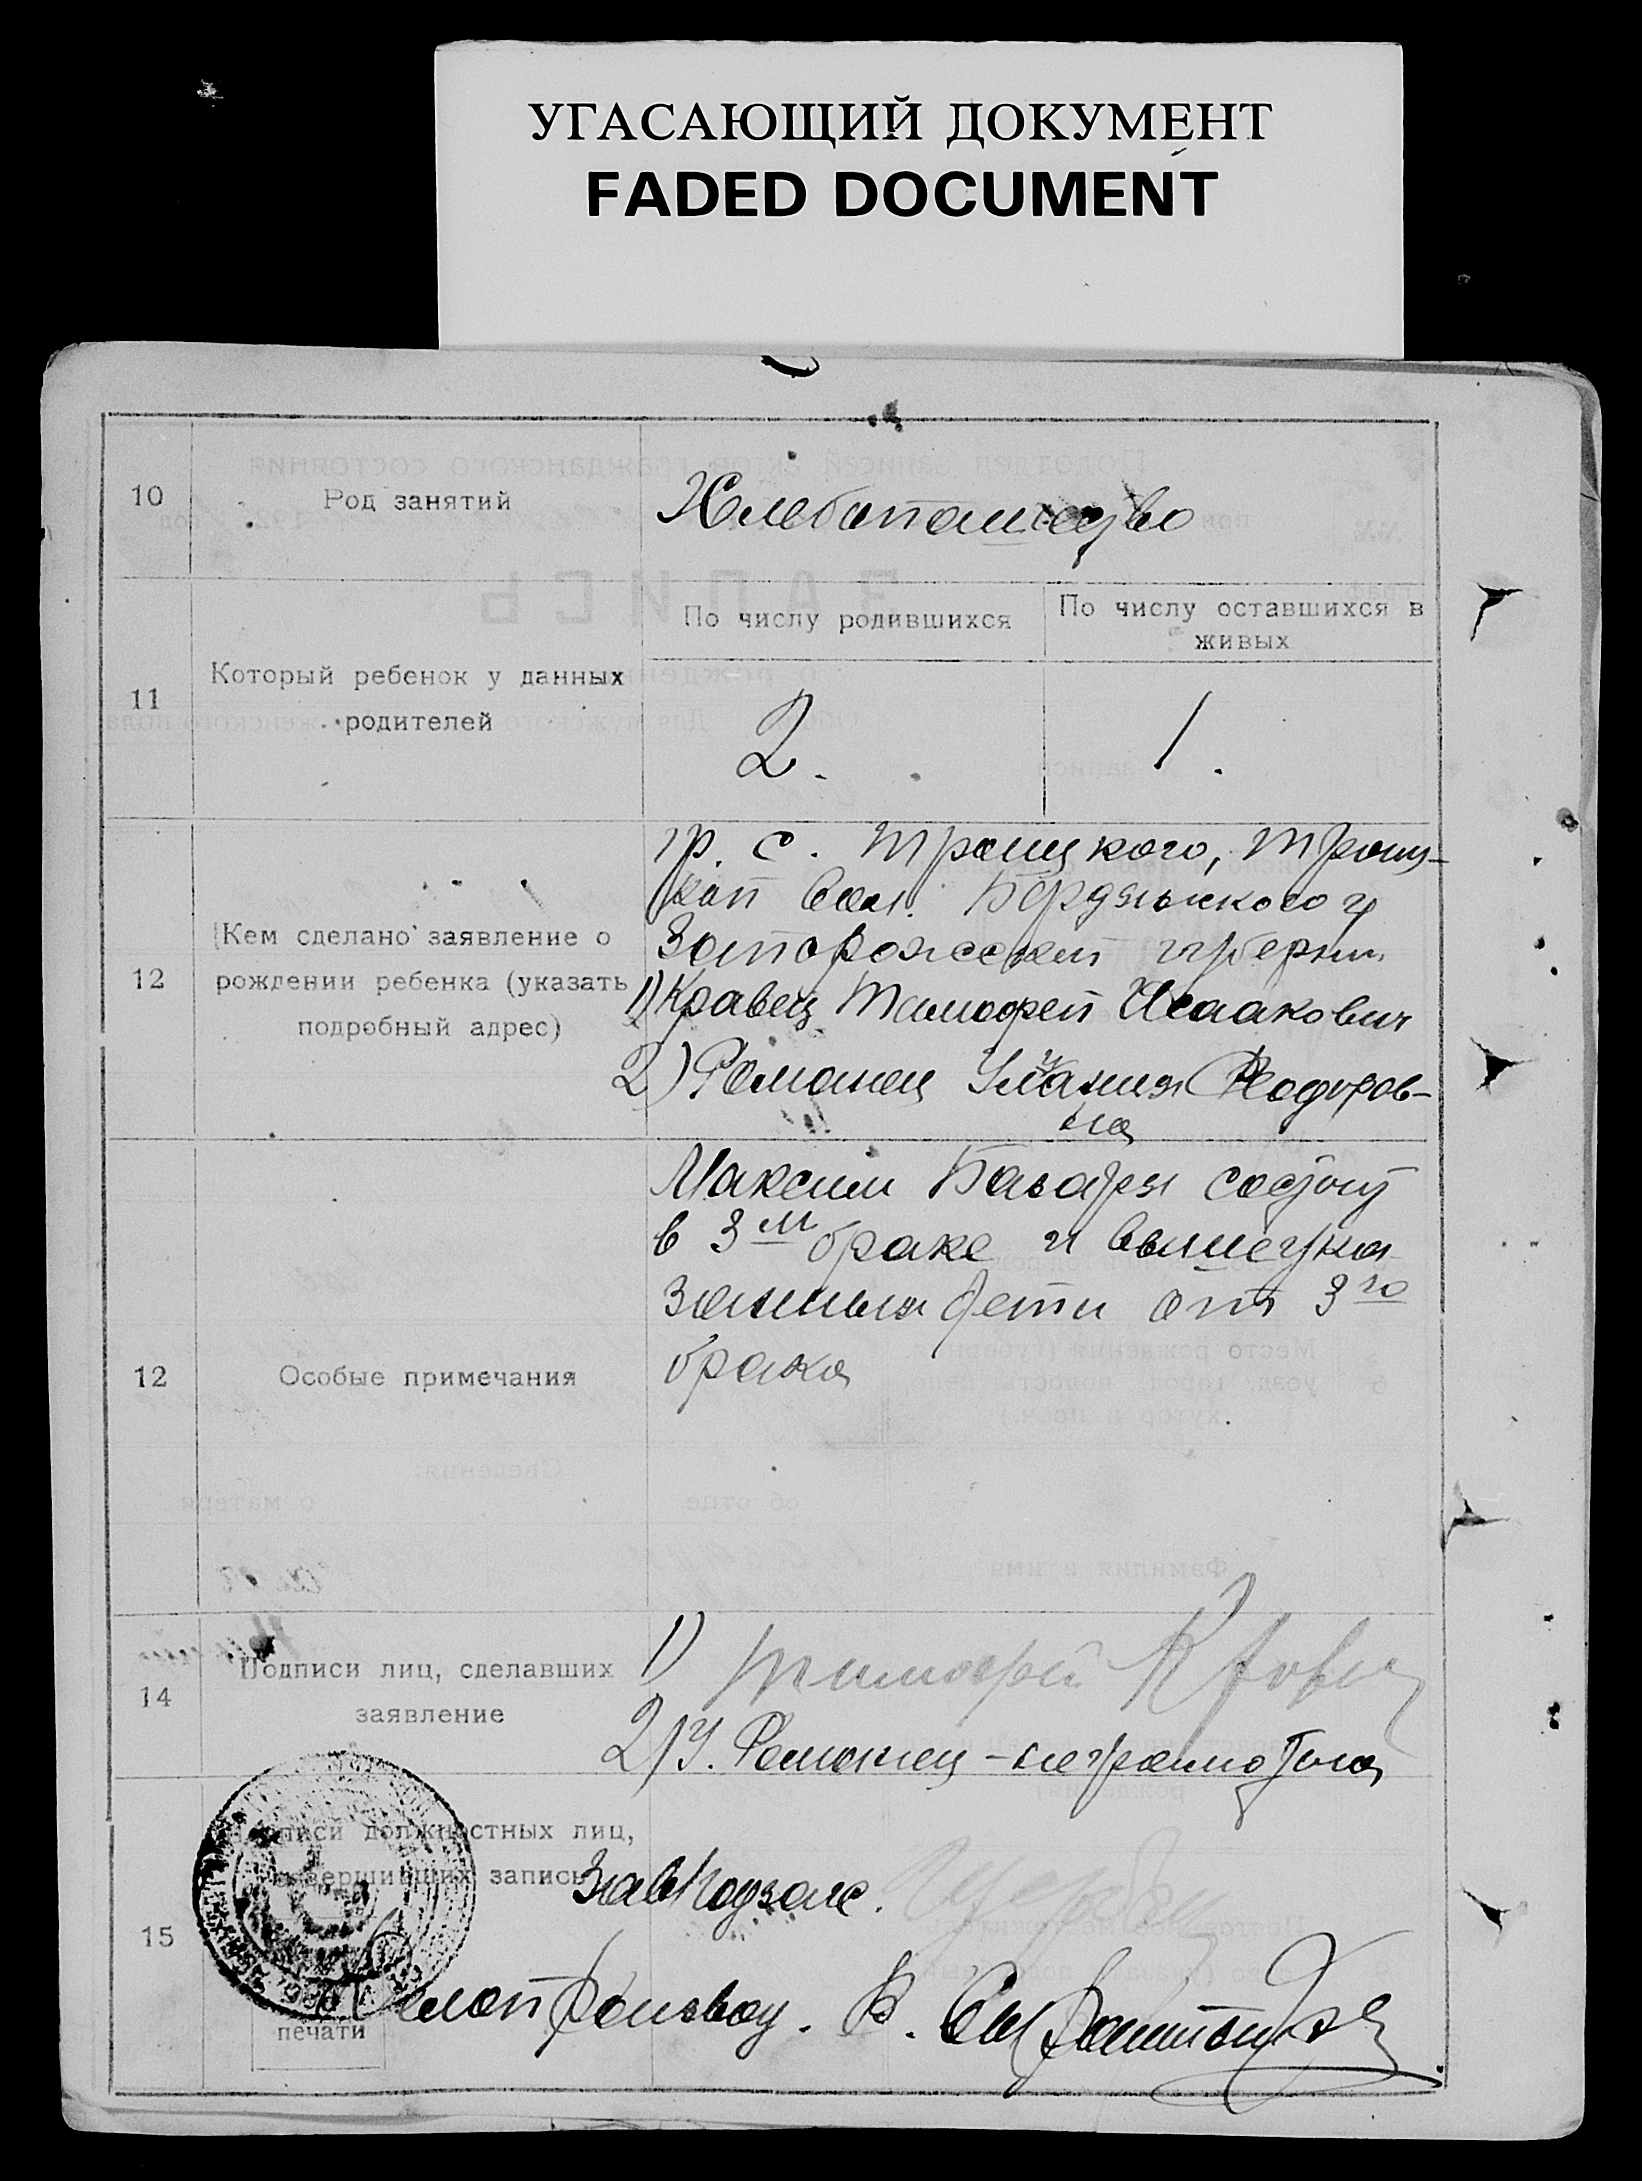 УГАСАЮЩИЙ ДОКУМЕНТ
FADED DOCUMENT
10
Род занятий
Хлебопашество
11
Который ребенок у данных
родителей
По числу родившихся
По числу оставшихся в
живых
2.
1.
12
Кем сделано заявление о
рождении ребенка (указать
подробный адрес)
гр. с. Троицкого, Троиц-
кой вол. Бердянского у
Запорожской губернии
1) Кравец Тимофей Исаакович
2) Романец Улиания Феодоров-
на
12
Особые примечания
Максим Базари состоит
в 3м браке и вышеука
занныя дети от 3го
брака
14
Подписи лиц, сделавших
заявление
1) Тимофей Кравец
2) У. Романец - неграмотна
15
Подписи должностных лиц,
совершивших запись
Завподзагс.
Делопроизвод. В.
печати